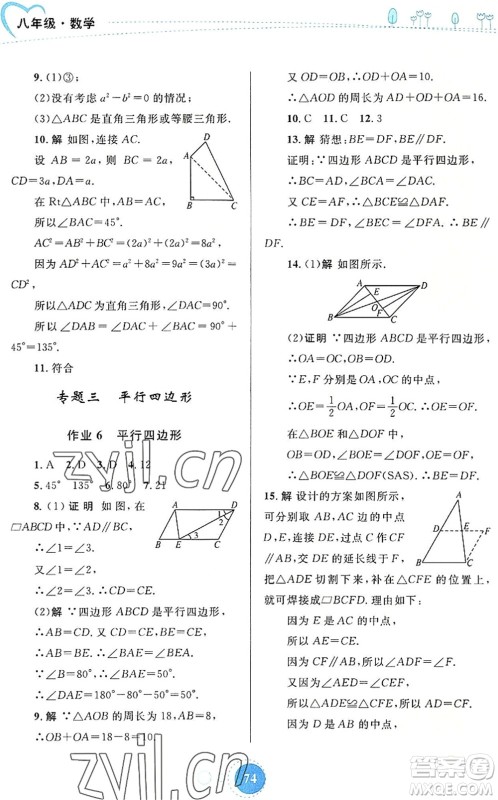 八年级·数学
9. (1)③;
(2)没有考虑 a²-b²=0 的情况;
(3)△ABC 是直角三角形或等腰三角形.
10. 解 如图,连接 AC.
设 AB=2a,则 BC=2a,
CD=3a,DA=a.
在 Rt△ABC 中,AB=BC,
所以∠BAC=45°.
AC²=AB²+BC²=(2a)²+(2a)²=8a²,
因为 AD²+AC²=a²+8a²=9a²=(3a)²=
CD²,
所以△ADC 为直角三角形,∠DAC=90°.
所以∠DAB=∠DAC+∠BAC=90°+
45°=135°.
11. 符合
专题三 平行四边形
作业 6 平行四边形
1. A 2. D 3. D 4. 12
5. 45° 135° 6. 80° 7. 21
8. (1)证明 ∵四边形
▱ABCD 中,∵AD∥BC,
∴∠1=∠3.
又∵∠1=∠2,
∴∠2=∠3.
(2)解 ∵四边形 ABCD 是平行四边形,
∴AB=CD. 又∵CD=BE,
∴AB=BE. ∴∠BAE=∠3=50°.
∴∠B=180°-50°-50°=80°.
9. 解 ∵△AOB 的周长为 18,AB=8,
∴OB+OA=10.
又∵OD=OB,∴OD+OA=10.
∴△AOD 的周长为 AD+OD+OA=16.
10. C 11. C 12. 3
13. 解 猜想:BE=DF,BE∥DF.
证明:∵四边形 ABCD 是平行四边形,
∴BC=AD,∠1=∠2.
又 CE=AF,∴△BCE≌△DAF.
∴BE=DF,∠BEC=∠DFA.
∴BE∥DF.
14. (1)解 如图所示.
(2)证明 ∵四边形 ABCD 是平行四边形,
∴OA=OC,OB=OD.
又∵E,F 分别是 OA,OC 的中点,
∴OE=1/2OA,OF=1/2OC,∴OE=OF.
在△BOE 和△DOF 中,
OB=OD,∠BOE=∠DOF,OE=OF,
∴△BOE≌△DOF(SAS).∴BE=DF.
15. 解 设计的方案如图所示.
可分别取 AB,AC 的中
点 D,E,连接 DE,过点 C
作 CF∥AB,交 DE 的延长线于点 F.
把△ADE 切割下来,补在△CFE 的位置上,
就可焊接成▱BCFD. 理由如下:
因为 E 是 AC 的中点,
所以 AE=CE. 因为 AD∥CF,
所以∠ADE=∠CFE.
又∠AED=∠CEF,
所以△ADE≌△CFE,所以 AD=CF.
因为 D 是 AB 的中点,所以 AD=BD.
74
zyjl.cn
zyjl.cn
答案圈
MXQE.COM